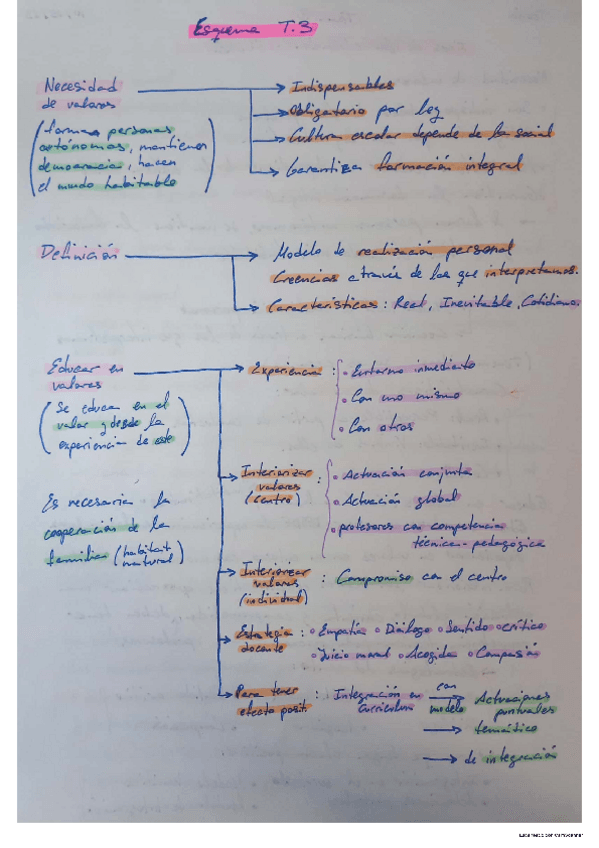 Esquema T.3
Necesidad
de valores
Indispensables
Obligatorio por ley
Cultura escolar depende de la social
Garantiza formación integral
(forman personas
autónomas, mantienen
democracia, hacen
el mundo habitable)
Definición
Modelo de realización personal
Creencias a través de las que interpretamos.
Características: Real, Inevitable, Cotidiano.
Educar en
valores
(Se educa en el
valor y desde la
experiencia de este)
Es necesaria la
cooperación de la
familia (habitat
natural)
Experiencia :
Entorno inmediato
Con uno mismo
Con otros
Interiorizar
valores
(centro) :
Actuación conjunta
Actuación global
profesores con competencia
técnico-pedagógica
Interiorizar
valores
(individual) : Compromiso con el centro
Estrategia
docente : Empatía Diálogo Sentido crítico
Juicio moral Acogida Compasión
Para tener
efecto posit. : Integración en
curriculum
con
modelo
Actuaciones
puntuales
temático
de integración